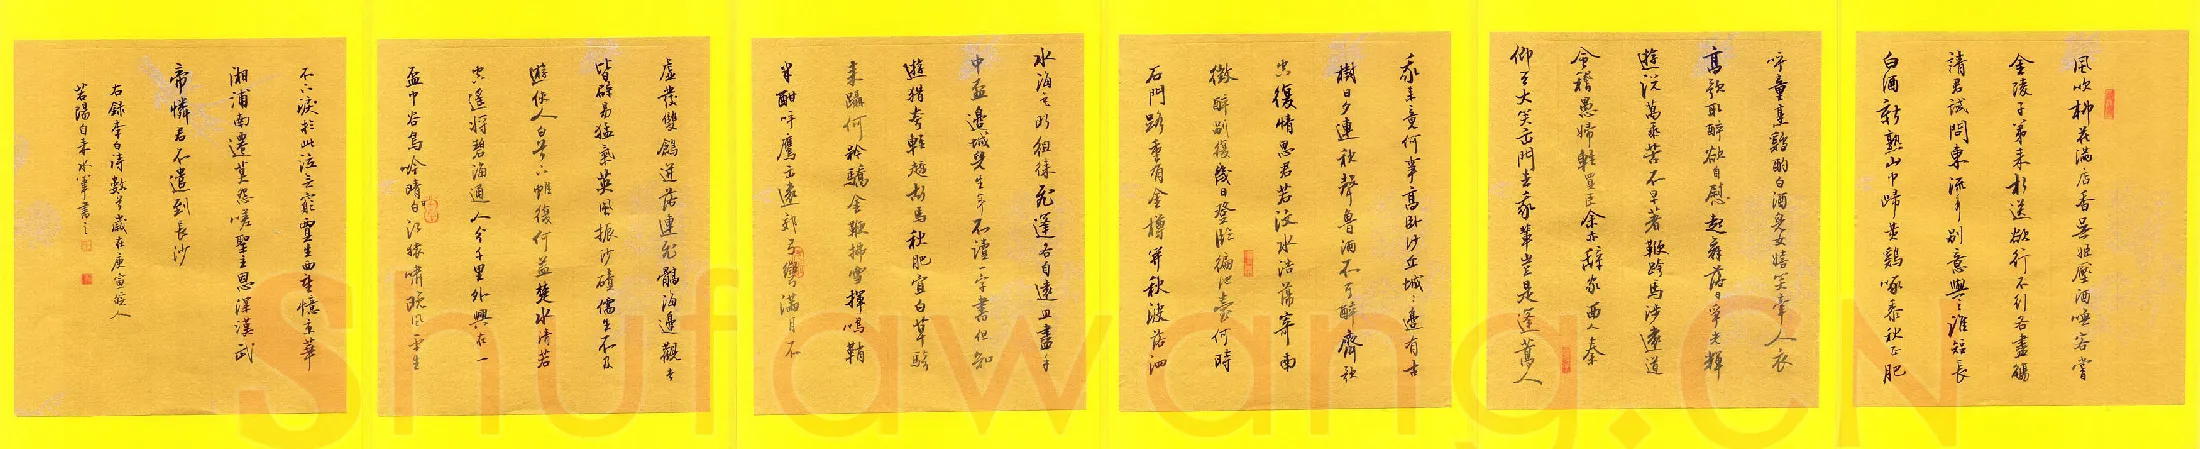 風吹柳花滿店香吳姬壓酒喚客嘗
金陵子弟來相送欲行不行各盡觴
請君試問東流水別意與之誰短長
白酒新熟山中歸黃鷄啄黍秋正肥
呼童烹鷄酌白酒兒女嬉笑牽人衣
高歌取醉欲自慰起舞落日爭光輝
遊說萬乘苦不早著鞭跨馬涉遠道
會稽愚婦輕買臣余亦辭家西入秦
仰天大笑出門去我輩豈是蓬蒿人
我來竟何事高卧沙丘城城邊有古
樹日夕連秋聲魯酒不可醉齊歌
空復情思君若汶水浩蕩寄南
徵醉別復幾日登臨徧池臺何時
石門路重有金樽開秋波落泗
水海色明徂徠飛蓬各自遠且盡手
中盃邊城兒生年不讀一字書但知
遊獵誇輕趫胡馬秋肥宜白草騎
來躡影何矜驕金鞭拂雪揮鳴鞘
半酣呼鷹出遠郊弓彎滿月不
虛發雙鶬迸落連飛髇海邊觀者
皆辟易猛氣英風振沙磧儒生不及
遊俠人白首下帷復何益楚水清若
空遙將碧海通人分千里外興在一
盃中谷鳥吟晴日江猿嘯晚風平生
不下淚於此泣無窮賈生西望憶京華
湘浦南遷莫怨嗟聖主恩深漢武
帝憐君不遣到長沙
右錄李白詩數首歲在庚寅
若陽白來水軍書之
Shufawang.CN